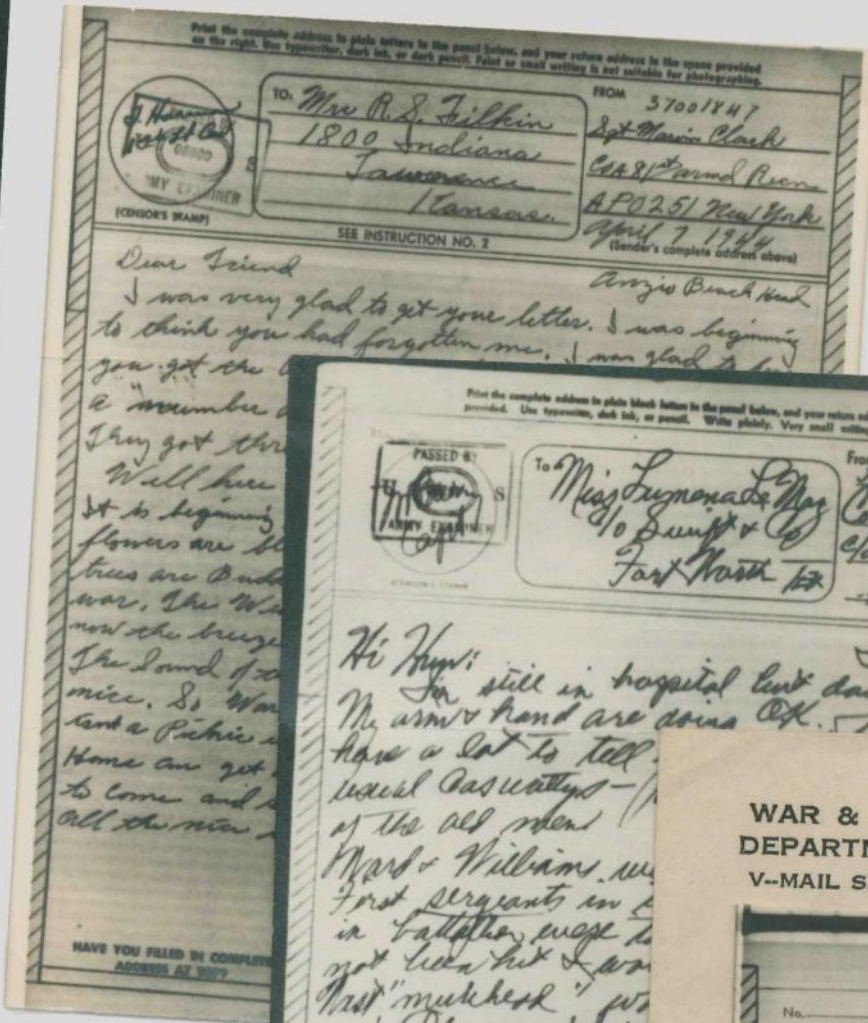 Print the complete address in plain letters in the panel below, and your return address in the space provided
on the right. Use typewriter, dark ink, or dark pencil. Faint or small writing is not suitable for photographing.
MY EXAMINER
(CENSOR'S STAMP)
TO:
Mrs R.S. Filkin
1800 Indiana
Lawrence
Kansas.
FROM
37001847
Sgt Marvin Clark
81st armd Recn
APO 251 New York
April 7 1944
(Sender's complete address above)
SEE INSTRUCTION NO. 2
Anzio Beach Head
Dear Friend
I was very glad to get your letter. I was beginning
to think you had forgotten me. I was glad to
you got the
a number
They got thr
Well here
It is beginning
flowers are bl
trees are Budd
war. The
now the breeze
The Sound of
mice. So War
Home can get
to come and
all the
HAVE YOU FILLED IN COMPLETE
ADDRESS AT TOP?
Print the complete address in plain block letters in the panel below, and your return ad
provided. Use typewriter, dark ink, or pencil. Write plainly. Very small writing
PASSED BY
U S
ARMY EXAMINER
Capt
To
Miss Le May
c/o Swift & Co
Fort Worth Tex
From
c/o
Hi Hun:
I'm still in hospital but
My arm & hand are doing OK.
have a lot to tell
usual casualtys—
of the old men
Ward & Williams. we
First sergeants in
in battallion
not been hit & wo
WAR &
DEPARTM
V--MAIL S
No.